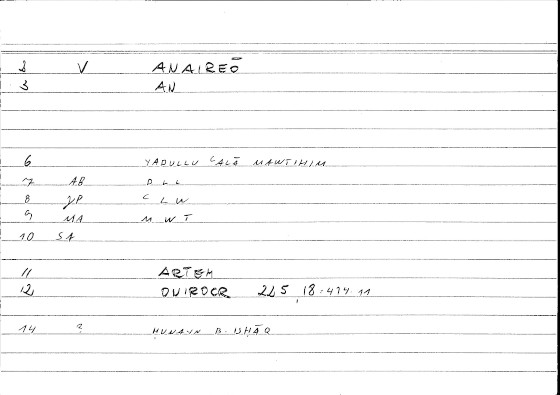 2 V ANAIREŌ
3 AN
6 YADULLU ʿALĀ MAWTIHIM
7 AB D L L
8 JP ʿ L W
9 MA M W T
10 SA
11 ARTEM
12 ONIROCR 225, 18-474.11
14 ? ḤUNAYN B. ISḤĀQ